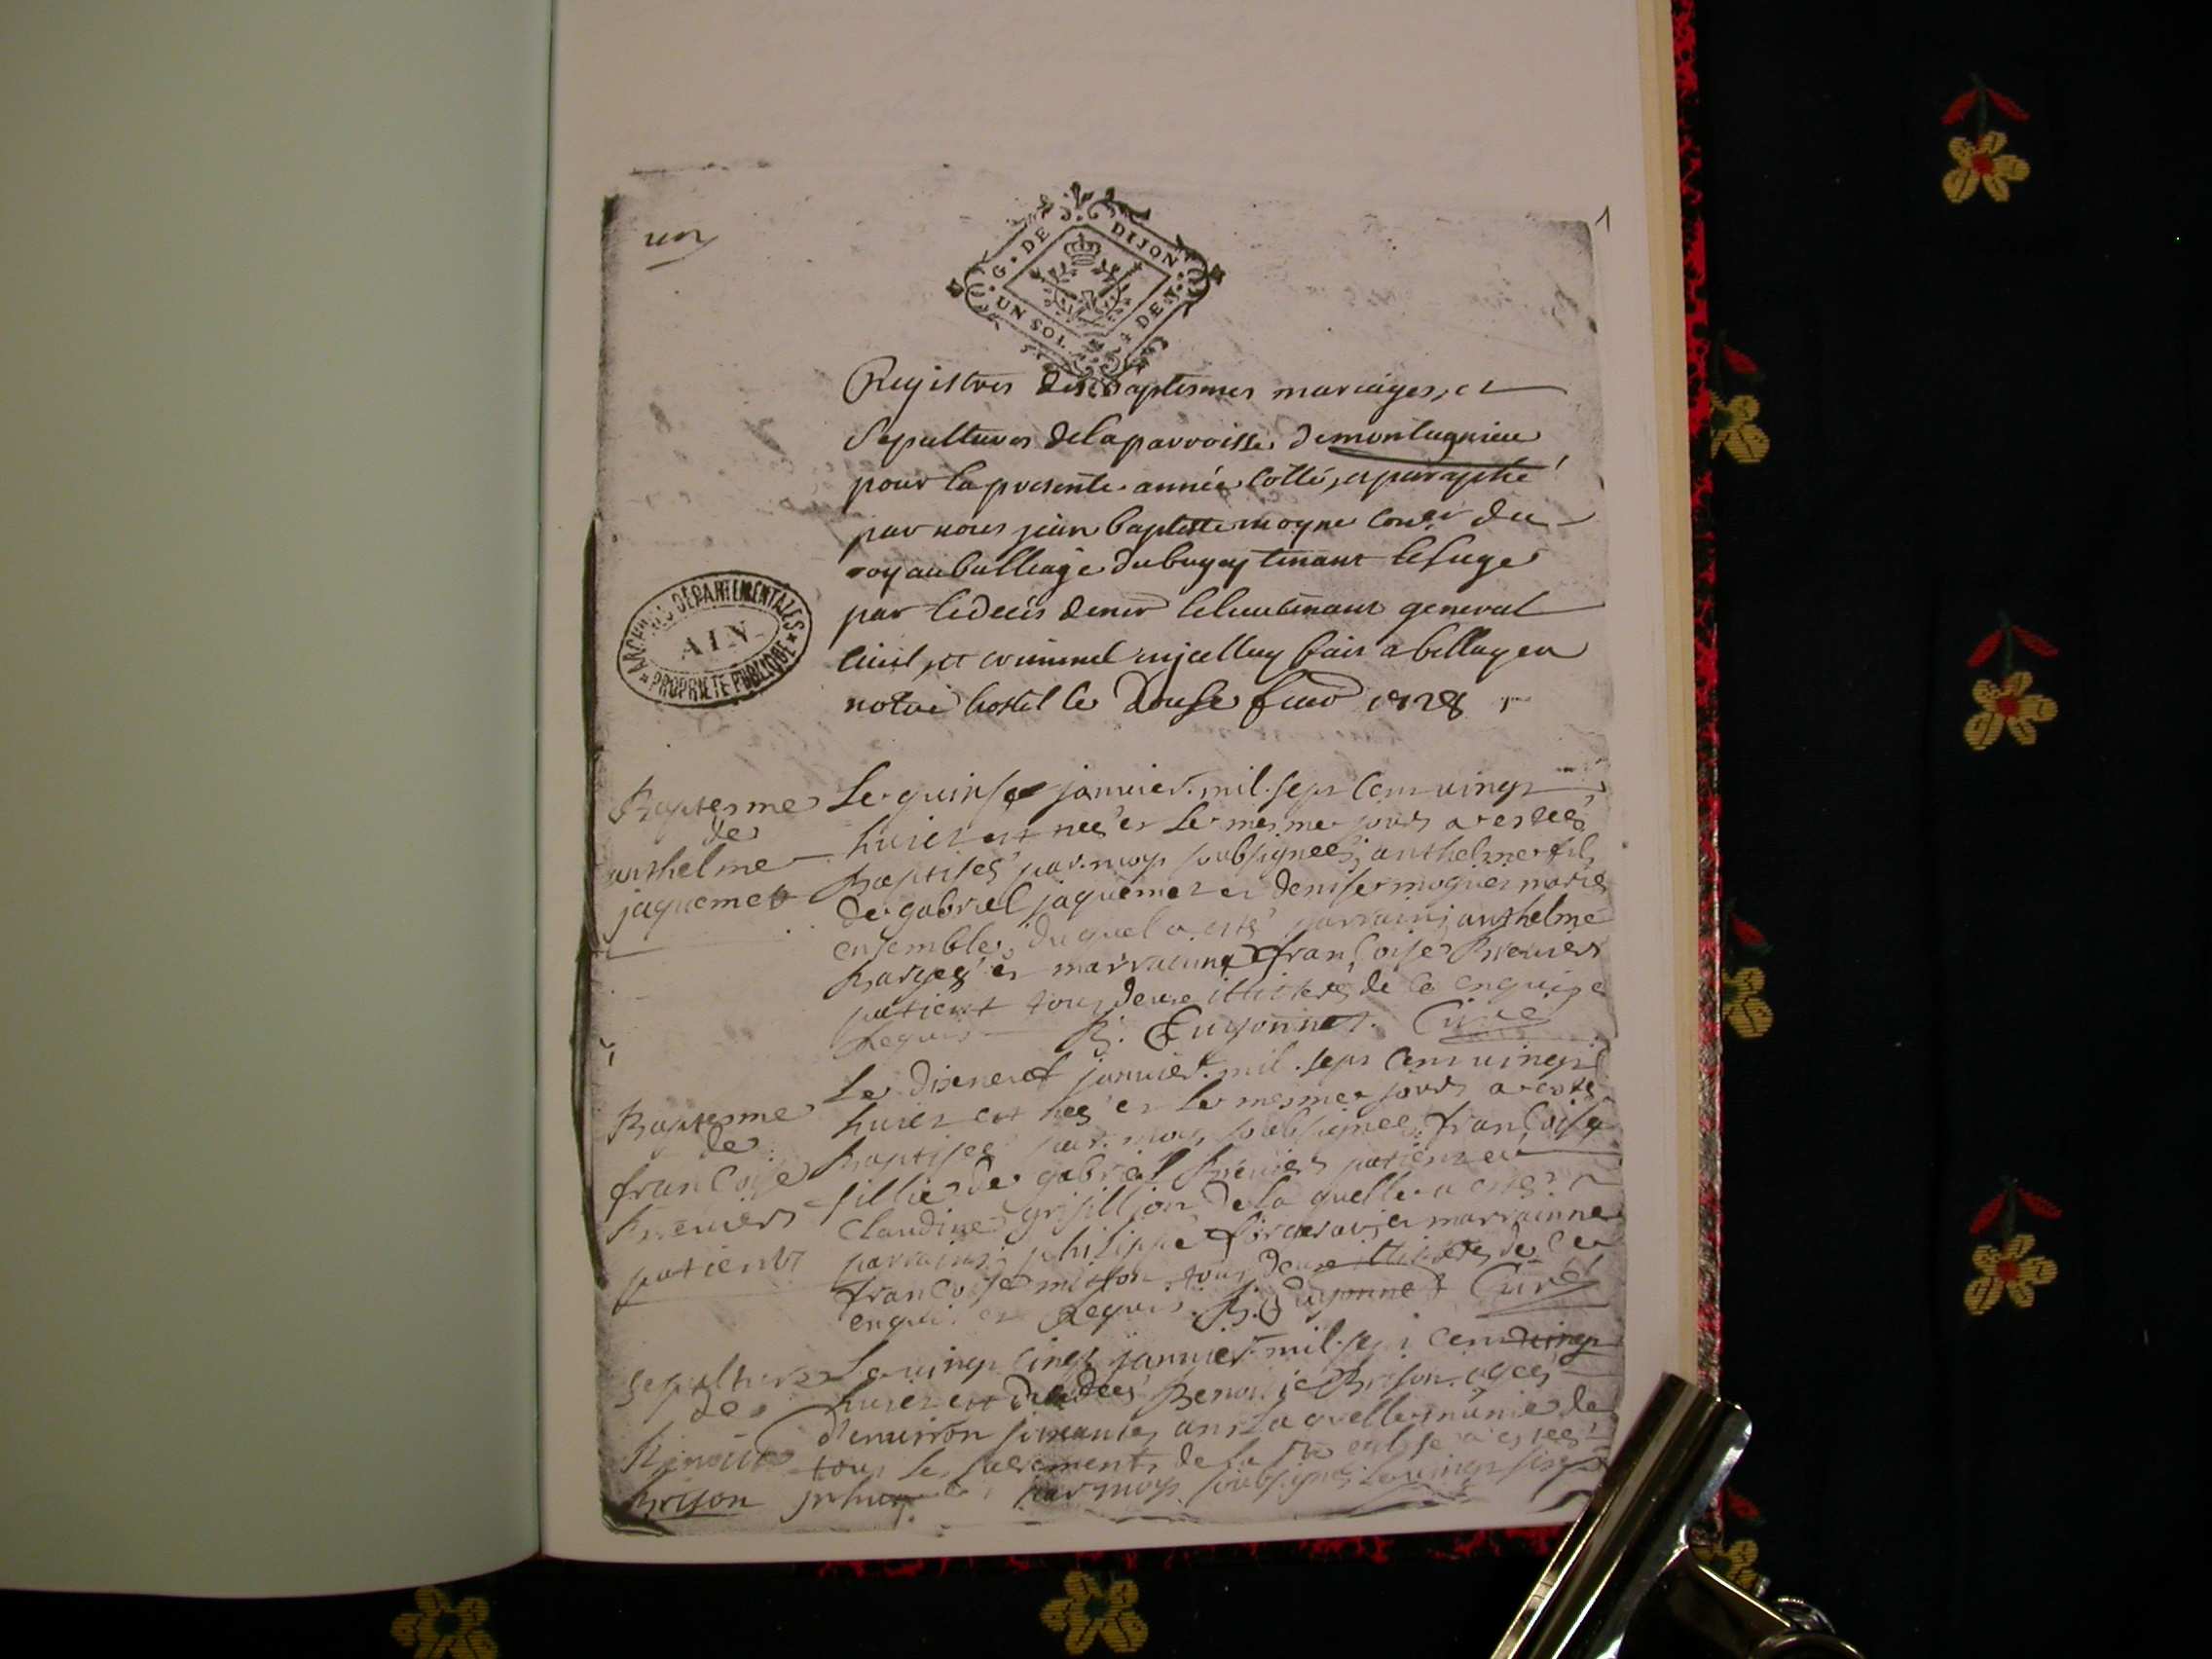 un
1
G. DE DIJON
UN SOL DE
Registres des Baptesmes mariages, et
Sepultures de la parroisse de montagnieu
pour la presente année Cotté, et paraphé
par nous jean baptiste moyne Coner du
roy au balliage du bugey tenant le siege
par le decés de mr le lieutenant general
Civil, et criminel en jcelluy fait a belley en
notre hostel le Douse 1728
ARCHIVES DÉPARTEMENTALES
AIN
PROPRIETE PUBLIQUE
Baptesme de anthelme jaquemet
Le quinse janvier mil sept Cent vingt
huict est neé et Le mesme jours a esteé
Baptiseé par moy soubsigneé anthelme fils
de gabriel jaquemet et denise mogier mariés
ensembles, duquel a esté parrain anthelme
et marrainne françoise Breviers
patient tous deux illiteré de Ce enquise
Requis B. Guyonnet. Curé
Baptesme de françoise Breviers patient
Le dixneuf janvier mil sept Cent vingt
huict est neé et Le mesme jours a esté
Baptiseé par moy soubsigneé françoise
fillie de gabriel Breviers patient et
Claudine grisillion de la quelle a esté
parrain philippe et marrainne
françoise tous deux illiteré de Ce
enquis et Requis. B. Guyonnet Curé
Sepulture de Benoite Brison
Le vingt cinq janvier mil sept Cent vingt
huict est decedeé Benoite Brison ageé
d'environ soixante ans Laquelle munie de
tous les sacrements de la Ste eglise a esteé
par moy soubsigné Le vingt